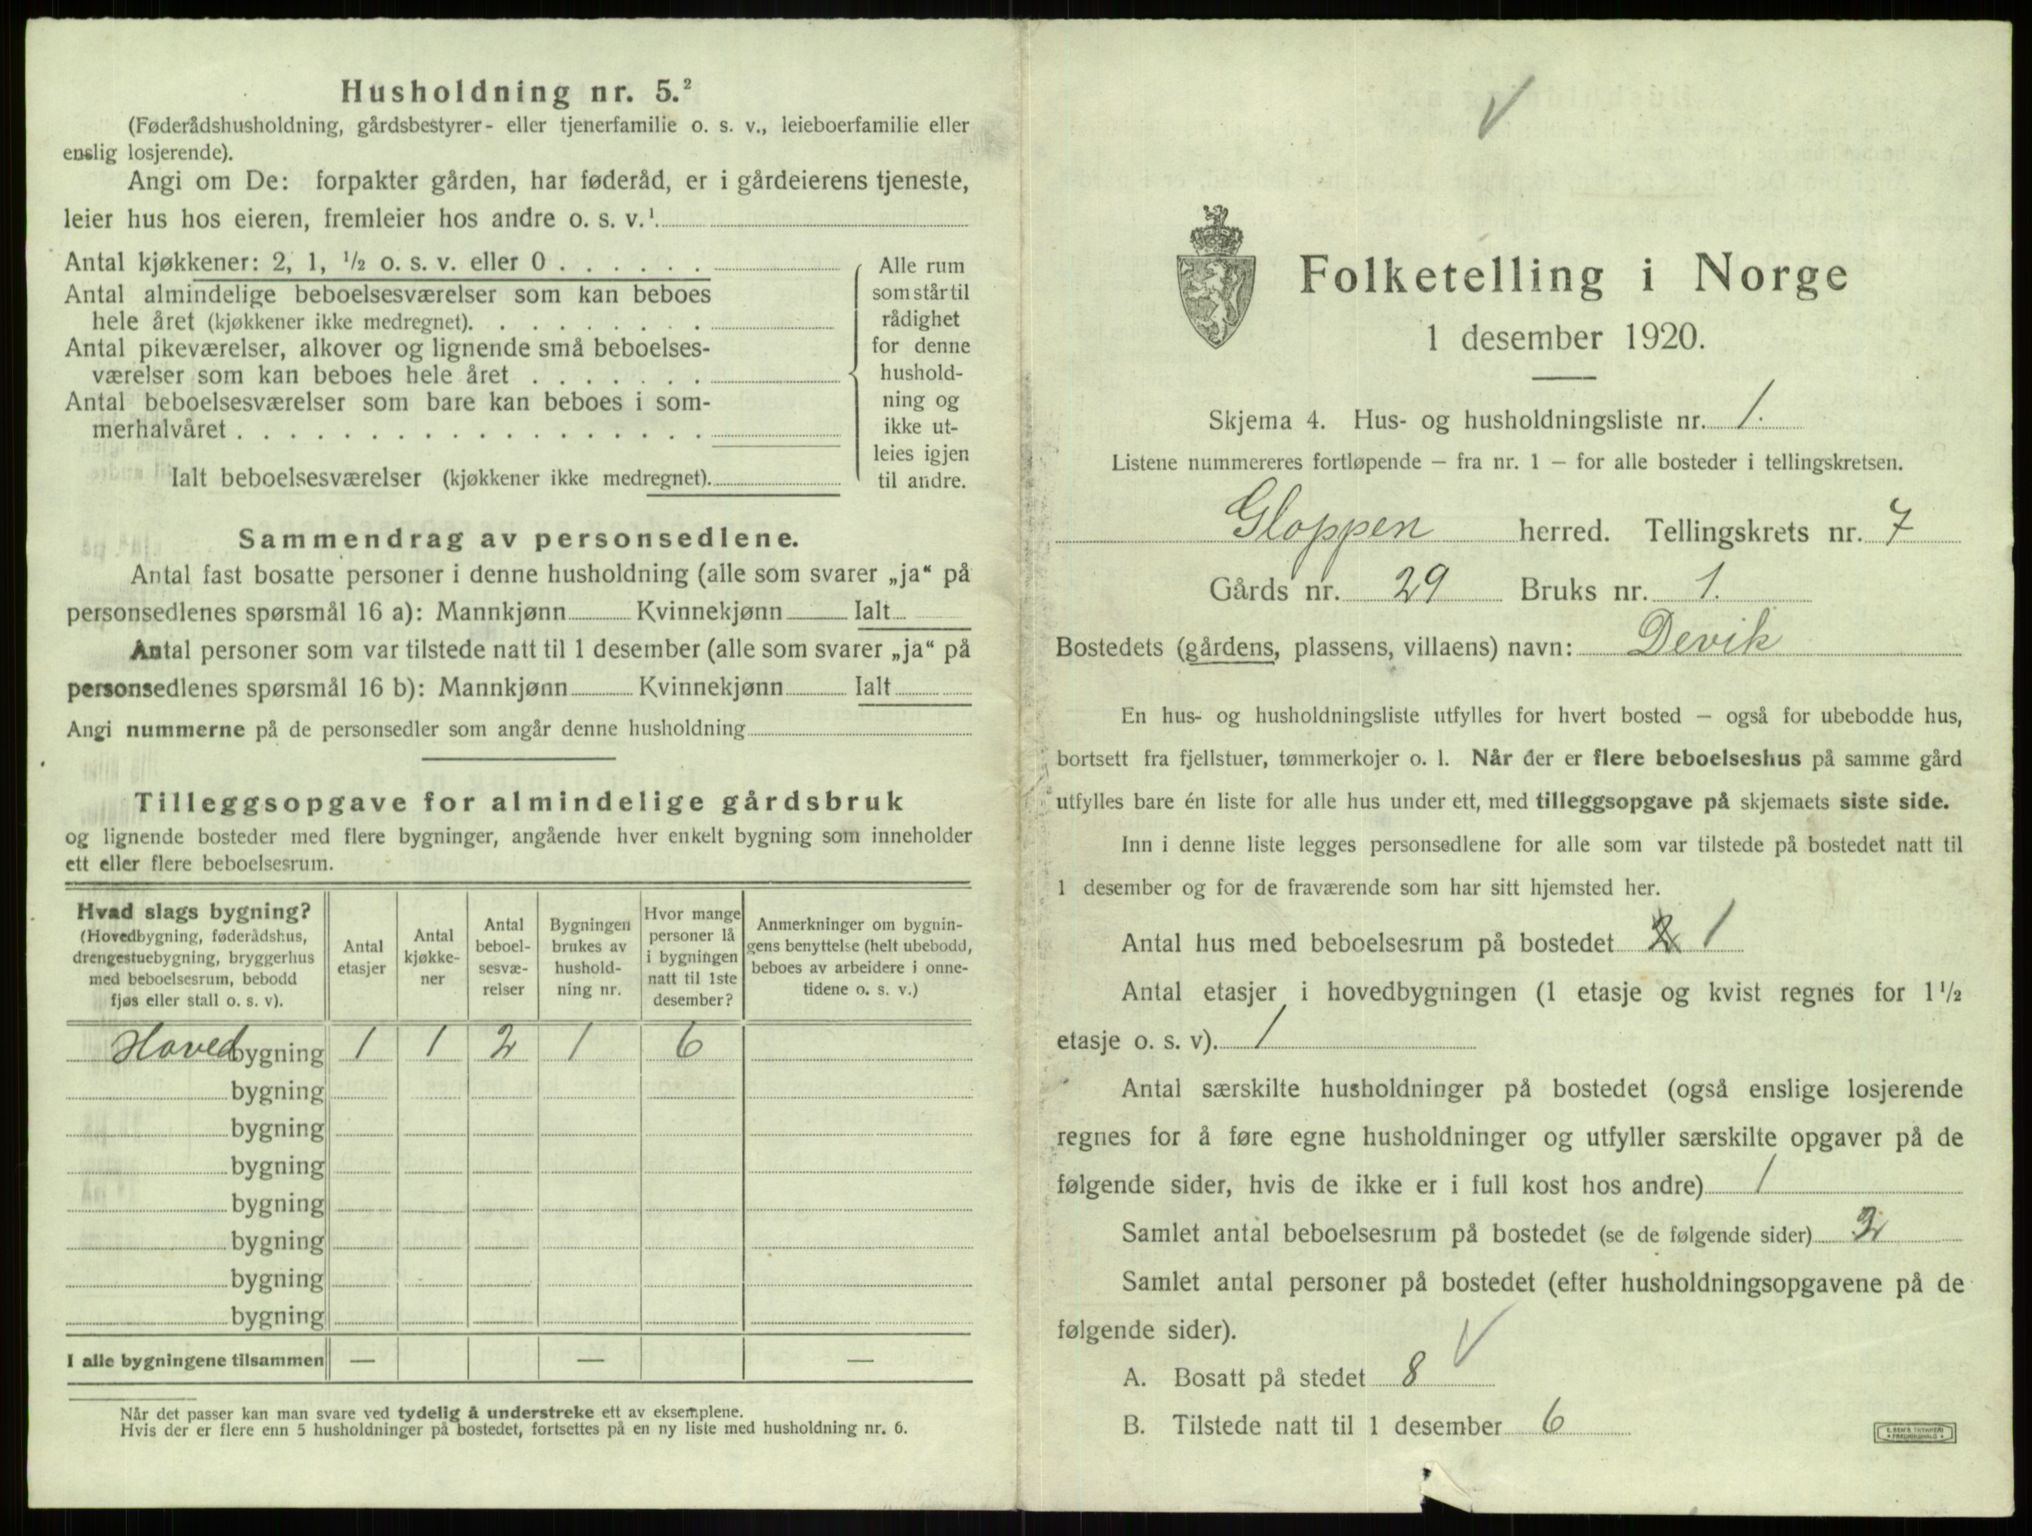 Husholdning nr. 5.²
(Føderådshusholdning, gårdsbestyrer- eller tjenerfamilie o. s. v., leieboerfamilie eller
enslig losjerende).
Angi om De: forpakter gården, har føderåd, er i gårdeierens tjeneste,
leier hus hos eieren, fremleier hos andre o. s. v.¹
Antal kjøkkener: 2, 1, ½ o. s. v. eller 0 . . . . . .
Antal almindelige beboelsesværelser som kan beboes
hele året (kjøkkener ikke medregnet). . . . . . . . .
Antal pikeværelser, alkover og lignende små beboelses-
værelser som kan beboes hele året . . . . . . .
Antal beboelsesværelser som bare kan beboes i som-
merhalvåret . . . . . . . . . . . . . . . . . .
Ialt beboelsesværelser (kjøkkener ikke medregnet).
Alle rum
som står til
rådighet
for denne
hushold-
ning og
ikke ut-
leies igjen
til andre.
Sammendrag av personsedlene.
Antal fast bosatte personer i denne husholdning (alle som svarer „ja“ på
personsedlenes spørsmål 16 a): Mannkjønn Kvinnekjønn Ialt
Antal personer som var tilstede natt til 1 desember (alle som svarer „ja“ på
personsedlenes spørsmål 16 b): Mannkjønn Kvinnekjønn Ialt
Angi nummerne på de personsedler som angår denne husholdning
Tilleggsopgave for almindelige gårdsbruk
og lignende bosteder med flere bygninger, angående hver enkelt bygning som inneholder
ett eller flere beboelsesrum.
Hvad slags bygning?
(Hovedbygning, føderådshus,
drengestuebygning, bryggerhus
med beboelsesrum, bebodd
fjøs eller stall o. s. v).
Antal
etasjer
Antal
kjøkke-
ner
Antal
beboel-
sesvæ-
relser
Bygningen
brukes av
hushold-
ning nr.
Hvor mange
personer lå
i bygningen
natt til 1ste
desember?
Anmerkninger om bygnin-
gens benyttelse (helt ubebodd,
beboes av arbeidere i onne-
tidene o. s. v.)
Hovedbygning 1 1 2 1 6
bygning
bygning
bygning
bygning
bygning
bygning
bygning
I alle bygningene tilsammen — — —
Når det passer kan man svare ved tydelig å understreke ett av eksemplene.
Hvis der er flere enn 5 husholdninger på bostedet, fortsettes på en ny liste med husholdning nr. 6.
V
Folketelling i Norge
1 desember 1920.
Skjema 4. Hus- og husholdningsliste nr. 1.
Listene nummereres fortløpende — fra nr. 1 — for alle bosteder i tellingskretsen.
Gloppen herred. Tellingskrets nr. 7
Gårds nr. 29 Bruks nr. 1.
Bostedets (gårdens, plassens, villaens) navn: Devik
En hus- og husholdningsliste utfylles for hvert bosted — også for ubebodde hus,
bortsett fra fjellstuer, tømmerkojer o. l. Når der er flere beboelseshus på samme gård
utfylles bare én liste for alle hus under ett, med tilleggsopgave på skjemaets siste side.
Inn i denne liste legges personsedlene for alle som var tilstede på bostedet natt til
1 desember og for de fraværende som har sitt hjemsted her.
Antal hus med beboelsesrum på bostedet 2 1
Antal etasjer i hovedbygningen (1 etasje og kvist regnes for 1½
etasje o. s. v). 1
Antal særskilte husholdninger på bostedet (også enslige losjerende
regnes for å føre egne husholdninger og utfyller særskilte opgaver på de
følgende sider, hvis de ikke er i full kost hos andre) 1
Samlet antal beboelsesrum på bostedet (se de følgende sider) 2
Samlet antal personer på bostedet (efter husholdningsopgavene på de
følgende sider).
A. Bosatt på stedet 8 V
B. Tilstede natt til 1 desember 6